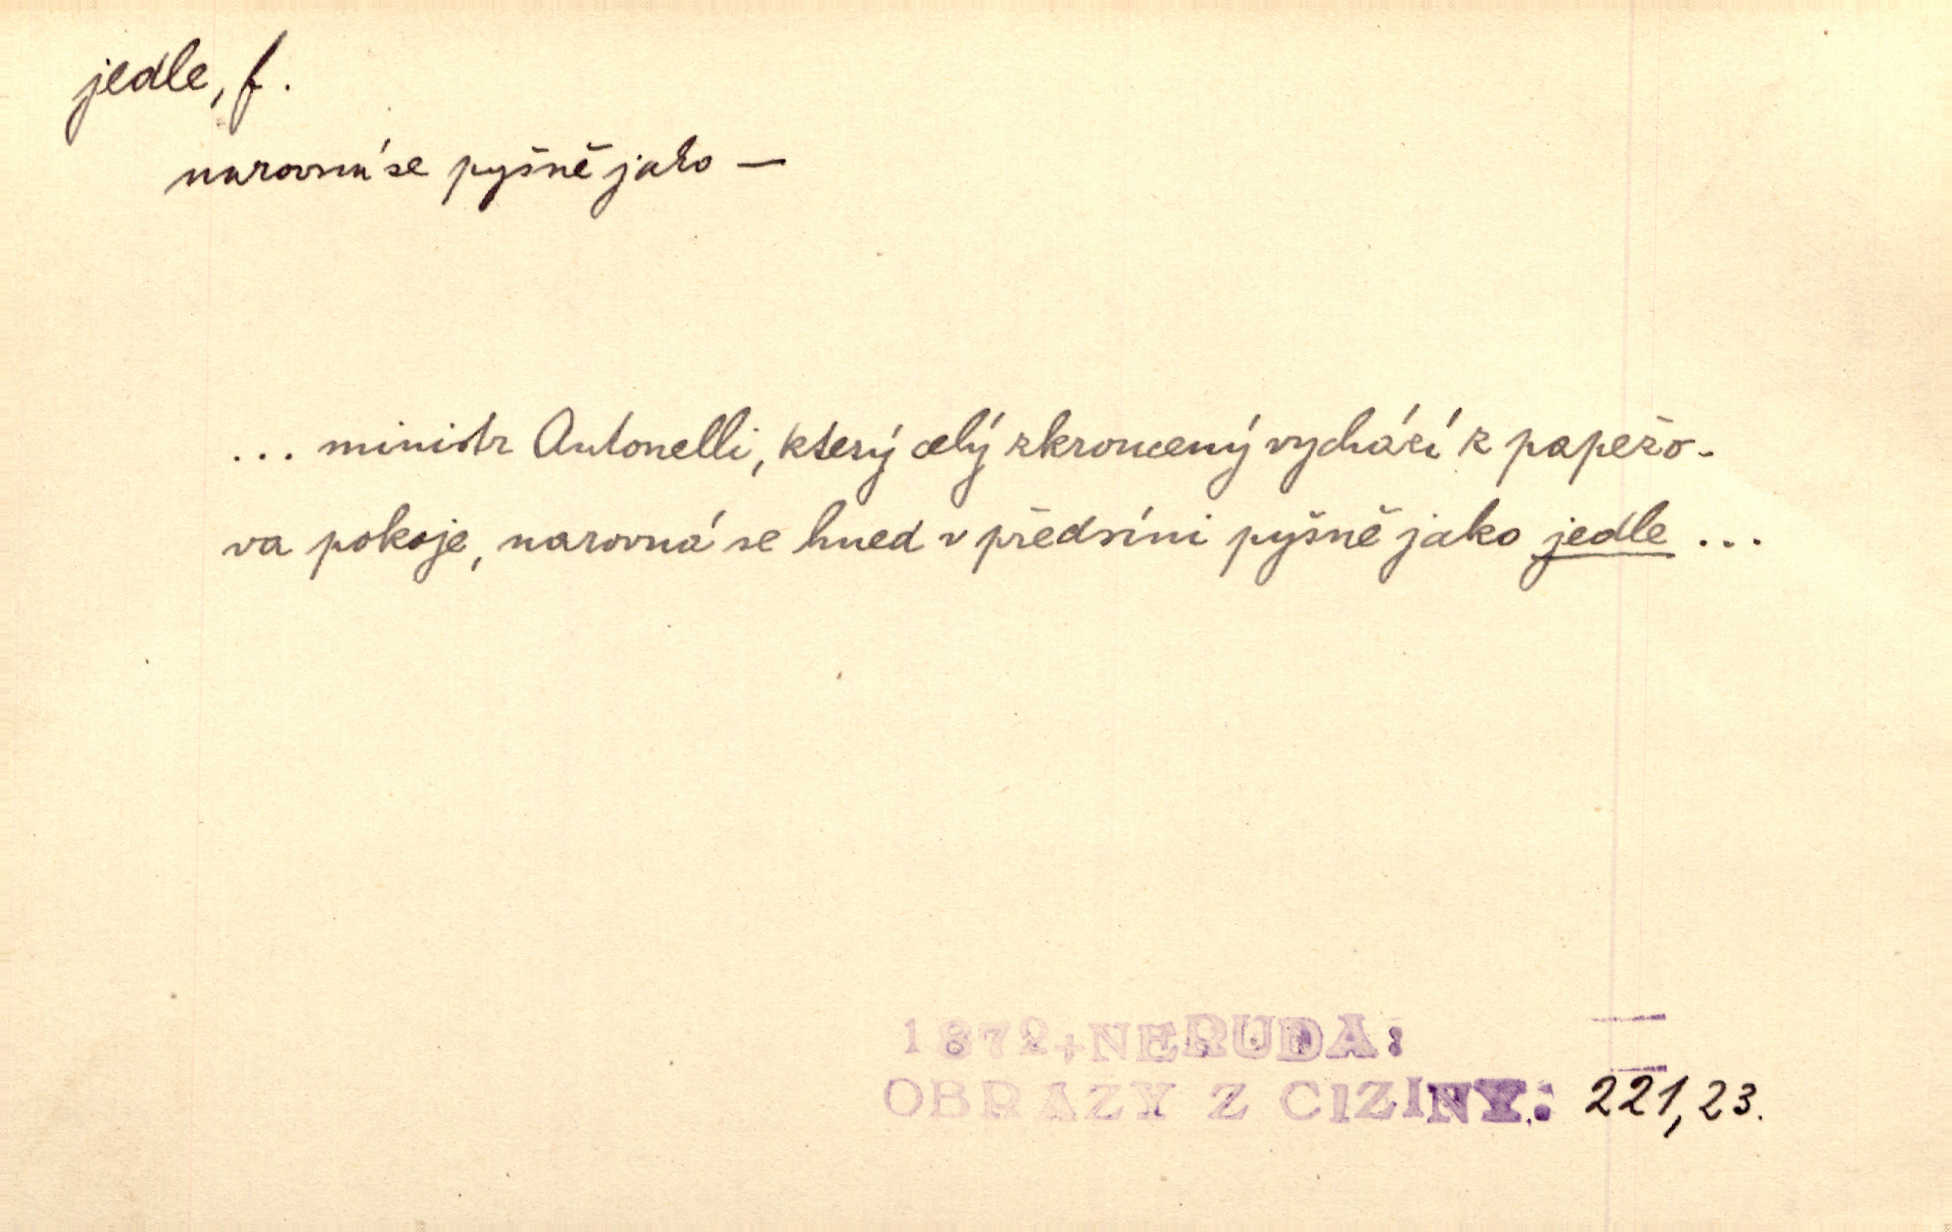 jedle, f.
narovná se pyšně jako —
... ministr Antonelli, který celý zkroucený vychází z papežo-
va pokoje, narovná se hned v předsíni pyšně jako jedle ...
1872+NERUDA:
OBRAZY Z CIZINY: 221,23.